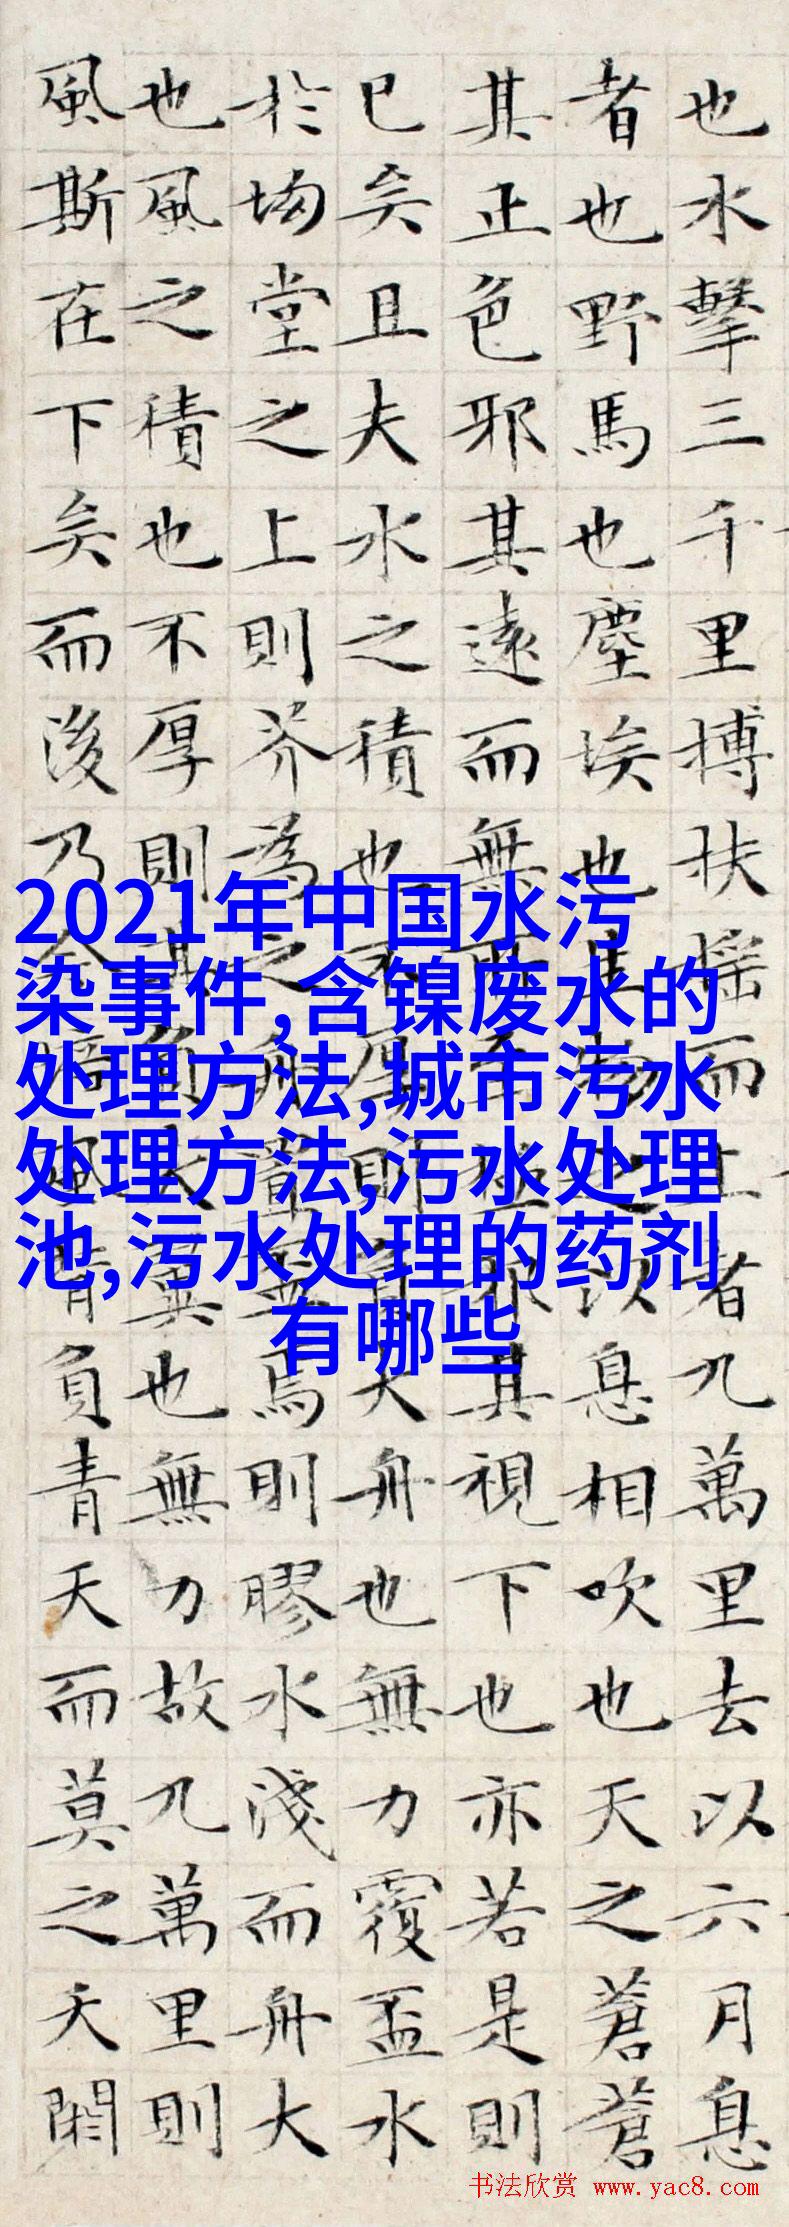 也水擊三千里搏扶摇而上者九萬里去以六月息
者也野馬也塵埃也生物之以息相吹也天之蒼蒼
其正色邪其遠而無所至極邪其視下也亦若是則
已矣且夫水之積也不厚則負大舟也無力覆盃水
於坳堂之上則芥為之舟置盃焉則膠水淺而舟大
也風之積也不厚則其負大翼也無力故九萬里則
風斯在下矣而後乃今培風背負青天而莫之夭閼
2021年中国水污
染事件,含镍废水的
处理方法,城市污水
处理方法,污水处理
池,污水处理的药剂
有哪些
书法欣赏 www.yac8.com